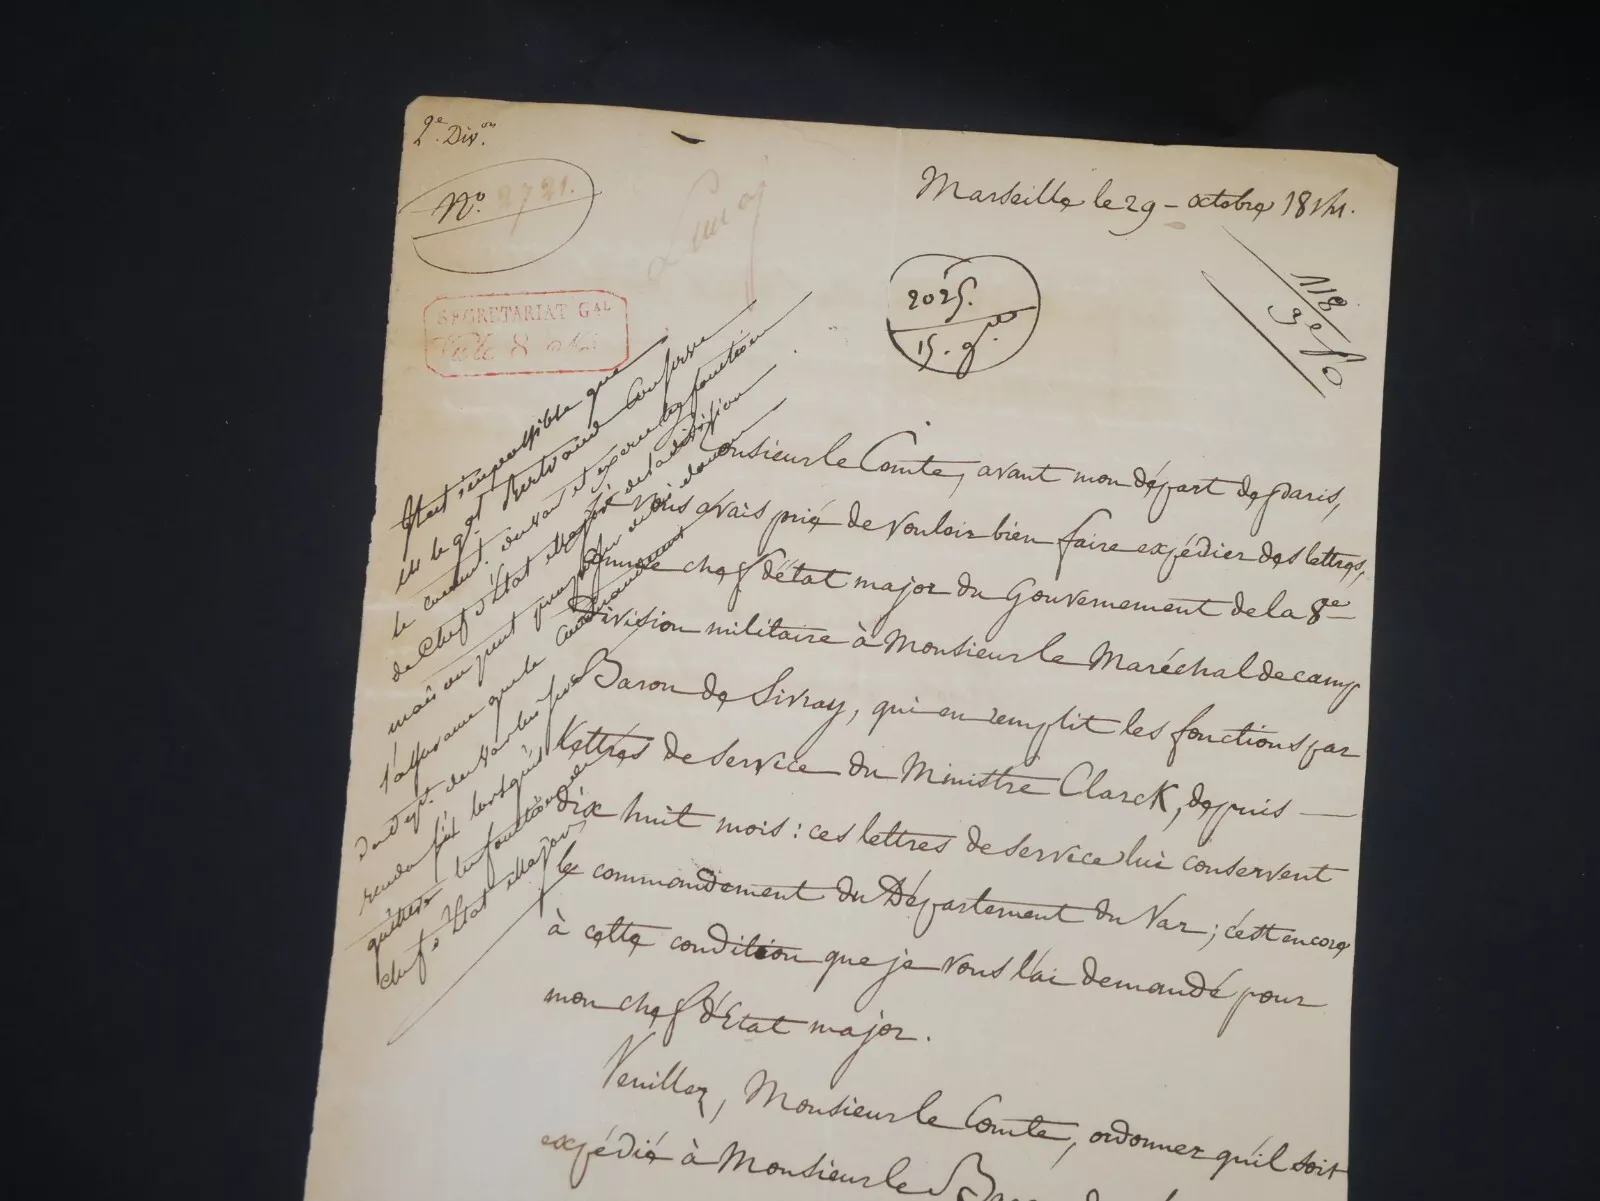 2e. Div.on
No. 2721.
Marseille le 29 - octobre 1814.
SECRETARIAT GAL
8
2025.
15. 9
118
Il est impossible que
le gal. Bertrand conserve
le commt. du var et exerce les fonctions
de chef d'État major de la division
mais on peut
l'assurance que le commandement
du Var lui sera
rendu lorsqu'il
quittera les fonctions de
chef d'État major
Monsieur le Comte, avant mon départ de paris,
je vous avais prié de vouloir bien faire expédier des lettres,
comme chef d'état major du Gouvernement de la 8e
Division militaire à Monsieur le Maréchal de camp
Baron de Sivray, qui en remplit les fonctions par
lettres de service du Ministre Clarck, depuis —
dix huit mois : ces lettres de service lui conservent
le commandement du Département du Var ; c'est encore
à cette condition que je vous l'ai demandé pour
mon chef d'Etat major.
Veuillez, Monsieur le Comte, ordonner qu'il soit
expédié à Monsieur le